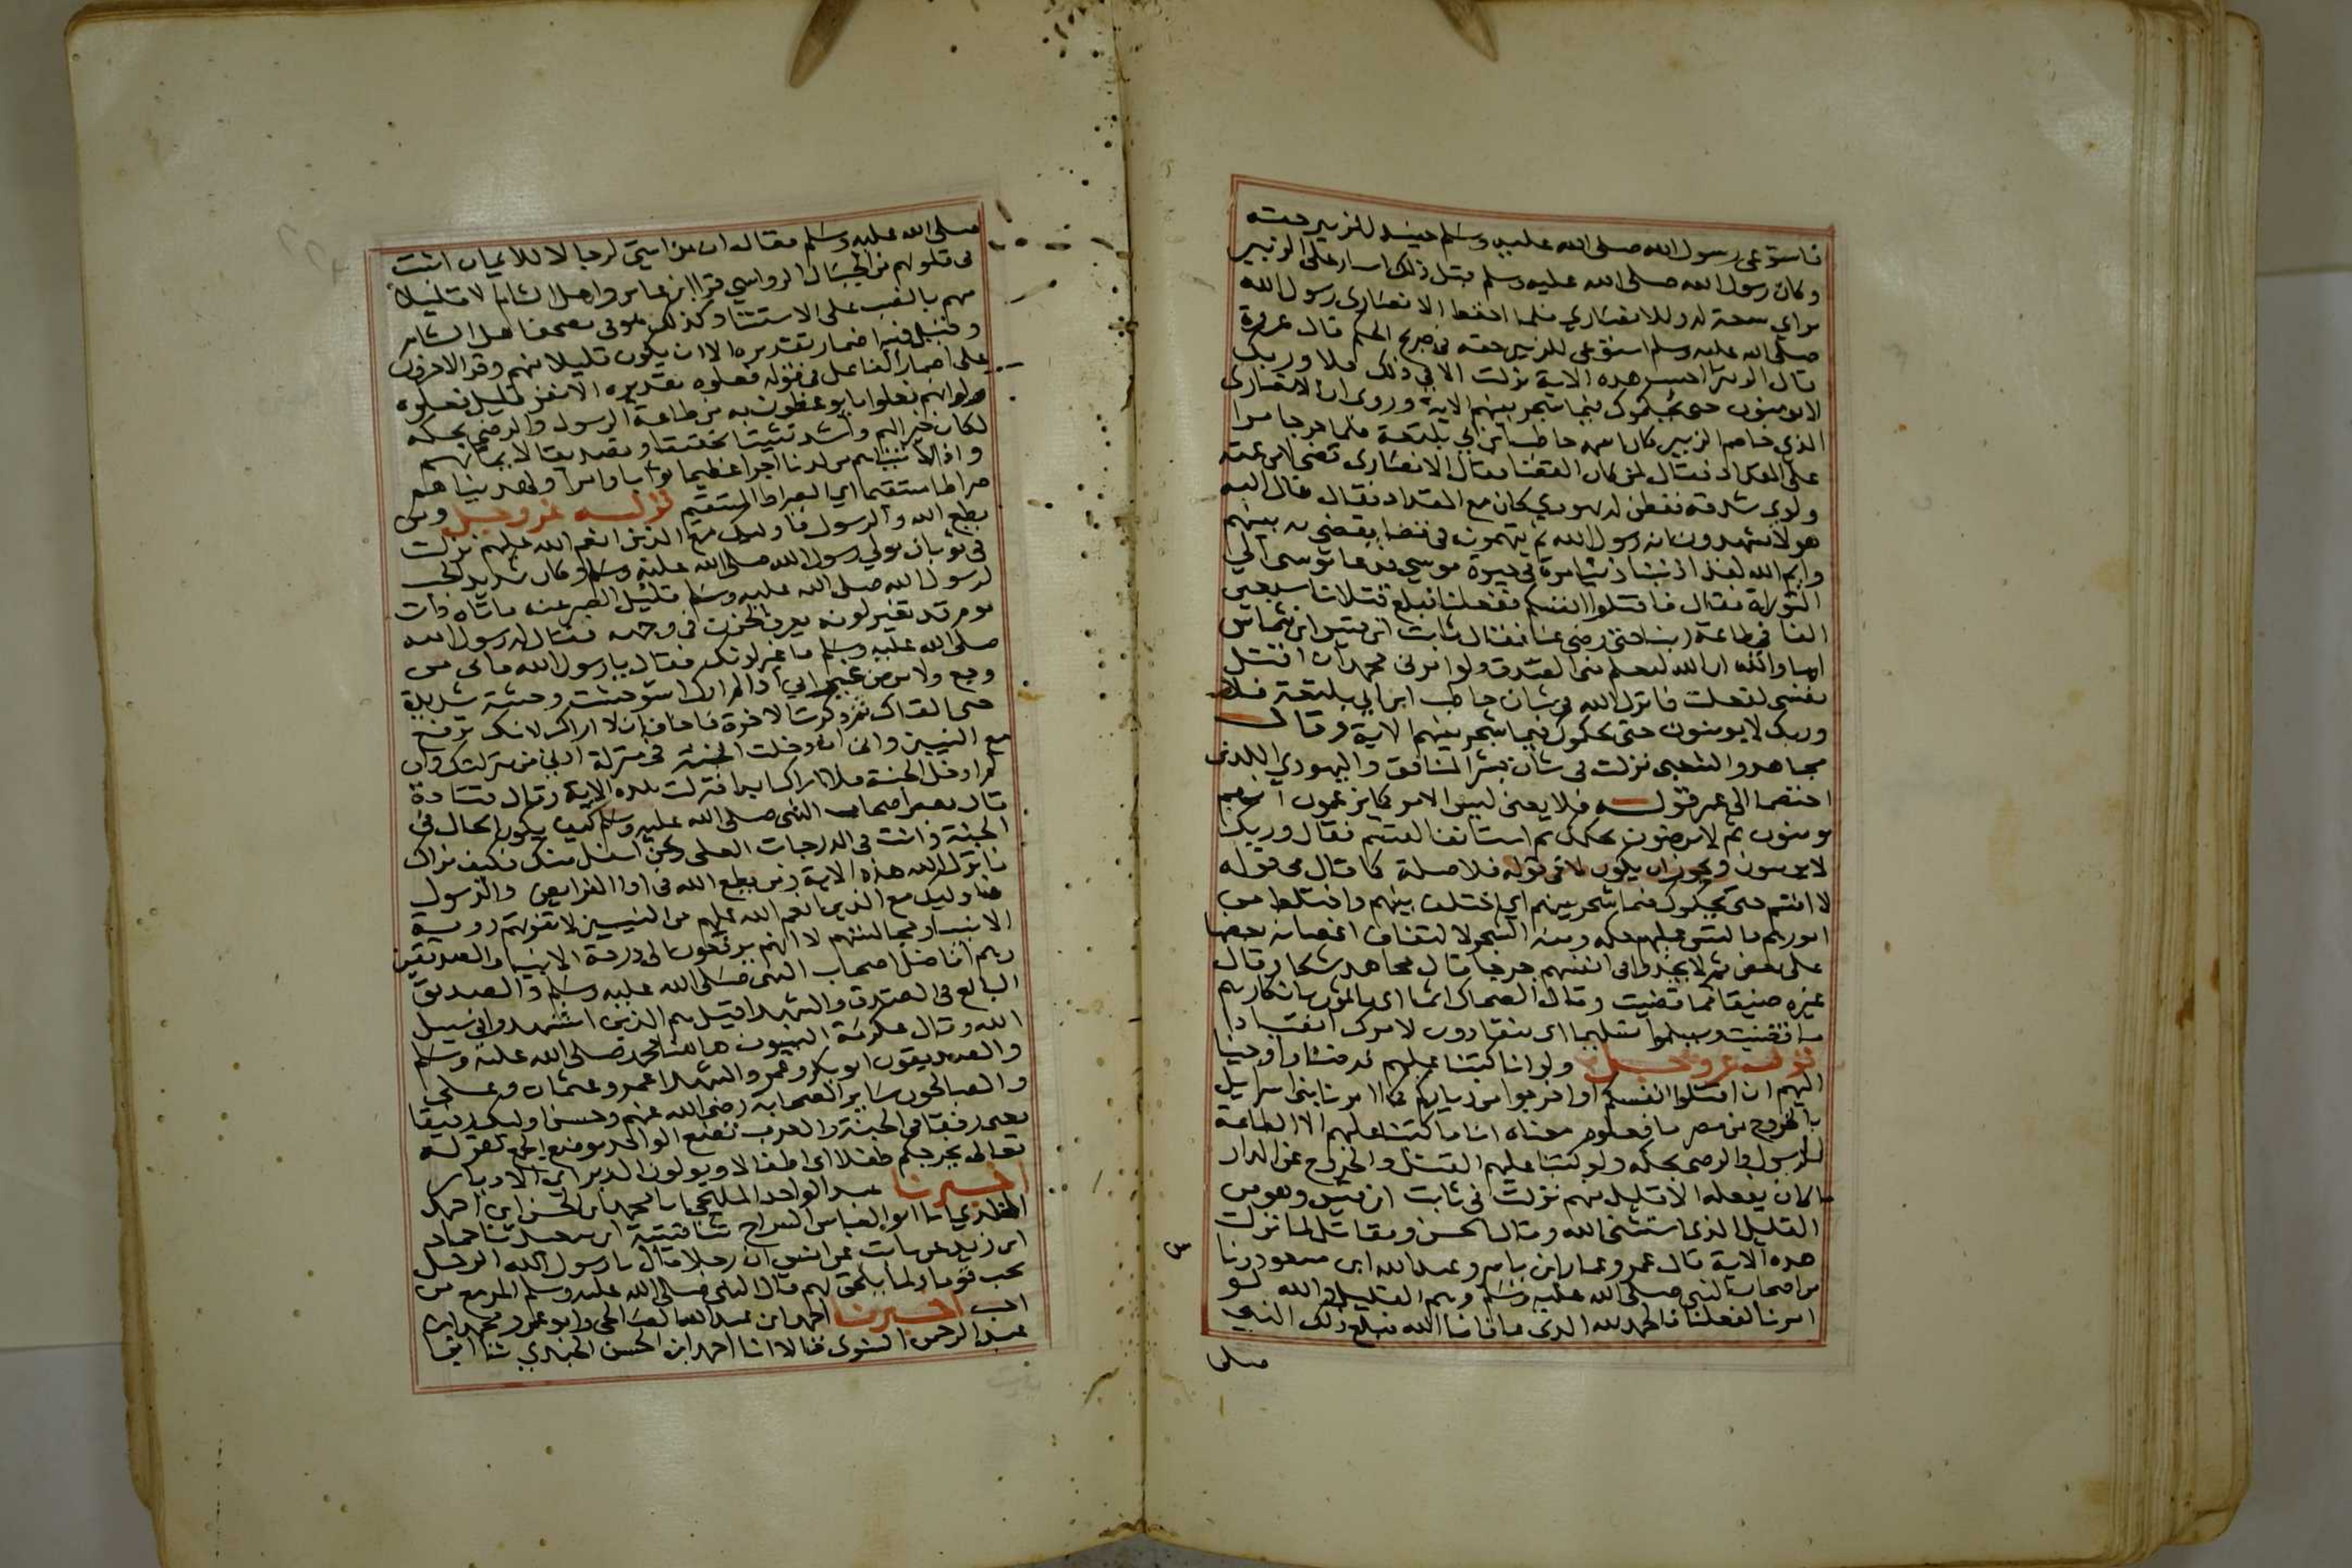 فاستوعى رسول الله صلى الله عليه وسلم حينيذ للزبير حقه
وكان رسول الله صلى الله عليه وسلم قبل ذلك اسار على الزبير
براي سعة له وللانصاري فلما احفظ الانصاري رسول الله
صلى الله عليه وسلم استوعى للزبير حقه في صريح الحكم قال عروة
قال الزبير احسب هذه الاية نزلت الا في ذلك فلا وربك
لا يومنون حتى يحكموك فيما شجر بينهم الاية وروي ان الانصاري
الذي خاصم الزبير كان اسمه حاطب ابن ابي بلتعة فلما خرجا مرا
على المقداد فقال لمن كان القضا فقال الانصاري قضى لابن عمته
ولوى شدقه ففطن له يهودي كان مع المقداد فقال قاتل الله
هولا يشهدون انه رسول الله ثم يتهمونه في قضا يقضي به بينهم
وايم الله لقد اذنبنا ذنبا مرة في حيوة موسى فدعا موسى الي
التوراة فقال فاقتلوا انفسكم ففعلنا فبلغ قتلانا سبعين
الفا في طاعة ربنا حتى رضي عنا فقال ثابت ابن قيس ابن شماس
اما والله ان الله ليعلم مني الصدق ولو امرني محمد ان اقتل
نفسي لفعلت فانزل الله في شان حاطب ابن ابي بلتعة فلا
وربك لا يومنون حتى يحكموك فيما شجر بينهم الاية وقال
مجاهد والشعبي نزلت في شان بشر المنافق واليهودي اللذين
اختصما الى عمر قوله فلا يعني ليس الامر كما يزعمون انهم
مومنون ثم لا يرضون بحكمك ثم استانف القسم فقال وربك
لا يومنون ويجوز ان يكون لا في قوله فلا صلة كما قال في قوله
لا اقسم حتى يحكموك فيما شجر بينهم اي اختلف بينهم واختلط من
امورهم والتبس عليهم حكمه ومنه الشجر لالتفاف اغصانه بعضها
على بعض ثم لا يجدوا في انفسهم حرجا قال مجاهد شكا وقال
غيره ضيقا مما قضيت وقال الضحاك اثما اي ياثمون بانكارهم
ما قضيت ويسلموا تسليما اي ينقادون لامرك انقيادا
قوله عز وجل ولو انا كتبنا عليهم فرضنا واوحينا
اليهم ان اقتلوا انفسكم او اخرجوا من دياركم كما امرنا بني اسرايل
بالخروج من مصر ما فعلوه معناه انا ما كتبنا عليهم الا الطاعة
للرسول والرضى بحكمه ولو كتبنا عليهم القتل والخروج عن الدار
ما كان يفعله الا قليل منهم نزلت في ثابت ابن قيس وهو من
القليل الذي استثنى الله وقال الحسن ومقاتل لما نزلت
هذه الاية قال عمر وعمار ابن ياسر وعبد الله ابن مسعود وناس
من اصحاب النبي صلى الله عليه وسلم وهم القليل والله لو
امرنا لفعلنا فالحمد لله الذي عافانا الله فبلغ ذلك النبي
صلى
صلى الله عليه وسلم فقال ان من امتي لرجالا للايمان اثبت
في قلوبهم من الجبال الرواسي قرا ابن عامر واهل الشام الا قليلا
منهم بالنصب على الاستثنا وكذلك هو في مصحف اهل الشام
وقيل فيه اضمار تقديره الا ان يكون قليلا منهم وقرا الاخرون
على اضمار الفاعل في قوله فعلوه تقديره الا نفر قليل فعلوه
ولو انهم فعلوا ما يوعظون به من طاعة الرسول والرضى بحكمه
لكان خيرا لهم واشد تثبيتا تحقيقا وتصديقا لايمانهم
واذا لاتيناهم من لدنا اجرا عظيما ثوابا وافرا ولهديناهم
صراطا مستقيما اي الصراط المستقيم قوله عز وجل ومن
يطع الله والرسول فاوليك مع الذين انعم الله عليهم نزلت
في ثوبان مولي رسول الله صلى الله عليه وسلم وكان شديد الحب
لرسول الله صلى الله عليه وسلم قليل الصبر عنه فاتاه ذات
يوم قد تغير لونه يعرف الحزن في وجهه فقال له رسول الله
صلى الله عليه وسلم ما غير لونك فقال يا رسول الله ما بي من
وجع ولا مرض غير اني اذا لم ارك استوحشت وحشة شديدة
حتى القاك ثم ذكرت الاخرة فاخاف ان لا اراك لانك ترفع
مع النبيين واني ان دخلت الجنة في منزلة ادنى من منزلتك وان
لم ادخل الجنة فلا اراك ابدا فنزلت هذه الاية وقال قتادة
قال بعض اصحاب النبي صلى الله عليه وسلم كيف يكون الحال في
الجنة وانت في الدرجات العلى ونحن اسفل منك فكيف نراك
فانزل الله هذه الاية ومن يطع الله في اداا الفرايض والرسول
فاوليك مع الذين انعم الله عليهم من النبيين لا تفوتهم روية
الانبيا ومجالستهم لا انهم يرفعون الى درجة الانبيا والصديقين
وهم افاضل اصحاب النبي صلى الله عليه وسلم والصديق
البالغ في الصدق والشهدا قيل هم الذين استشهدوا في سبيل
الله وقال عكرمة النبيون هاهنا محمد صلى الله عليه وسلم
والصديقون ابو بكر وعمر والشهدا عمر وعثمان وعلي
والصالحون ساير الصحابة رضي الله عنهم وحسن اوليك رفيقا
يعني رفقا في الجنة والعرب تضع الواحد موضع الجمع كقوله
تعالى يخرجكم طفلا اي اطفالا ويولون الدبر اي الادبار
اخبرنا عبد الواحد المليحي انا محمد ابن الحسن ابن احمد
المخلدي انا ابو العباس السراج ثنا قتيبة ابن سعيد ثنا حماد
ابن زيد عن ثابت عن انس ان رجلا قال يا رسول الله الرجل
يحب قوما ولما يلحق بهم قال النبي صلى الله عليه وسلم المرء مع من
احب اخبرنا احمد ابن عبد الله الصالحي وابو عمرو محمد ابن
عبد الرحمن النسوي قالا انا احمد ابن الحسن الحيري ثنا